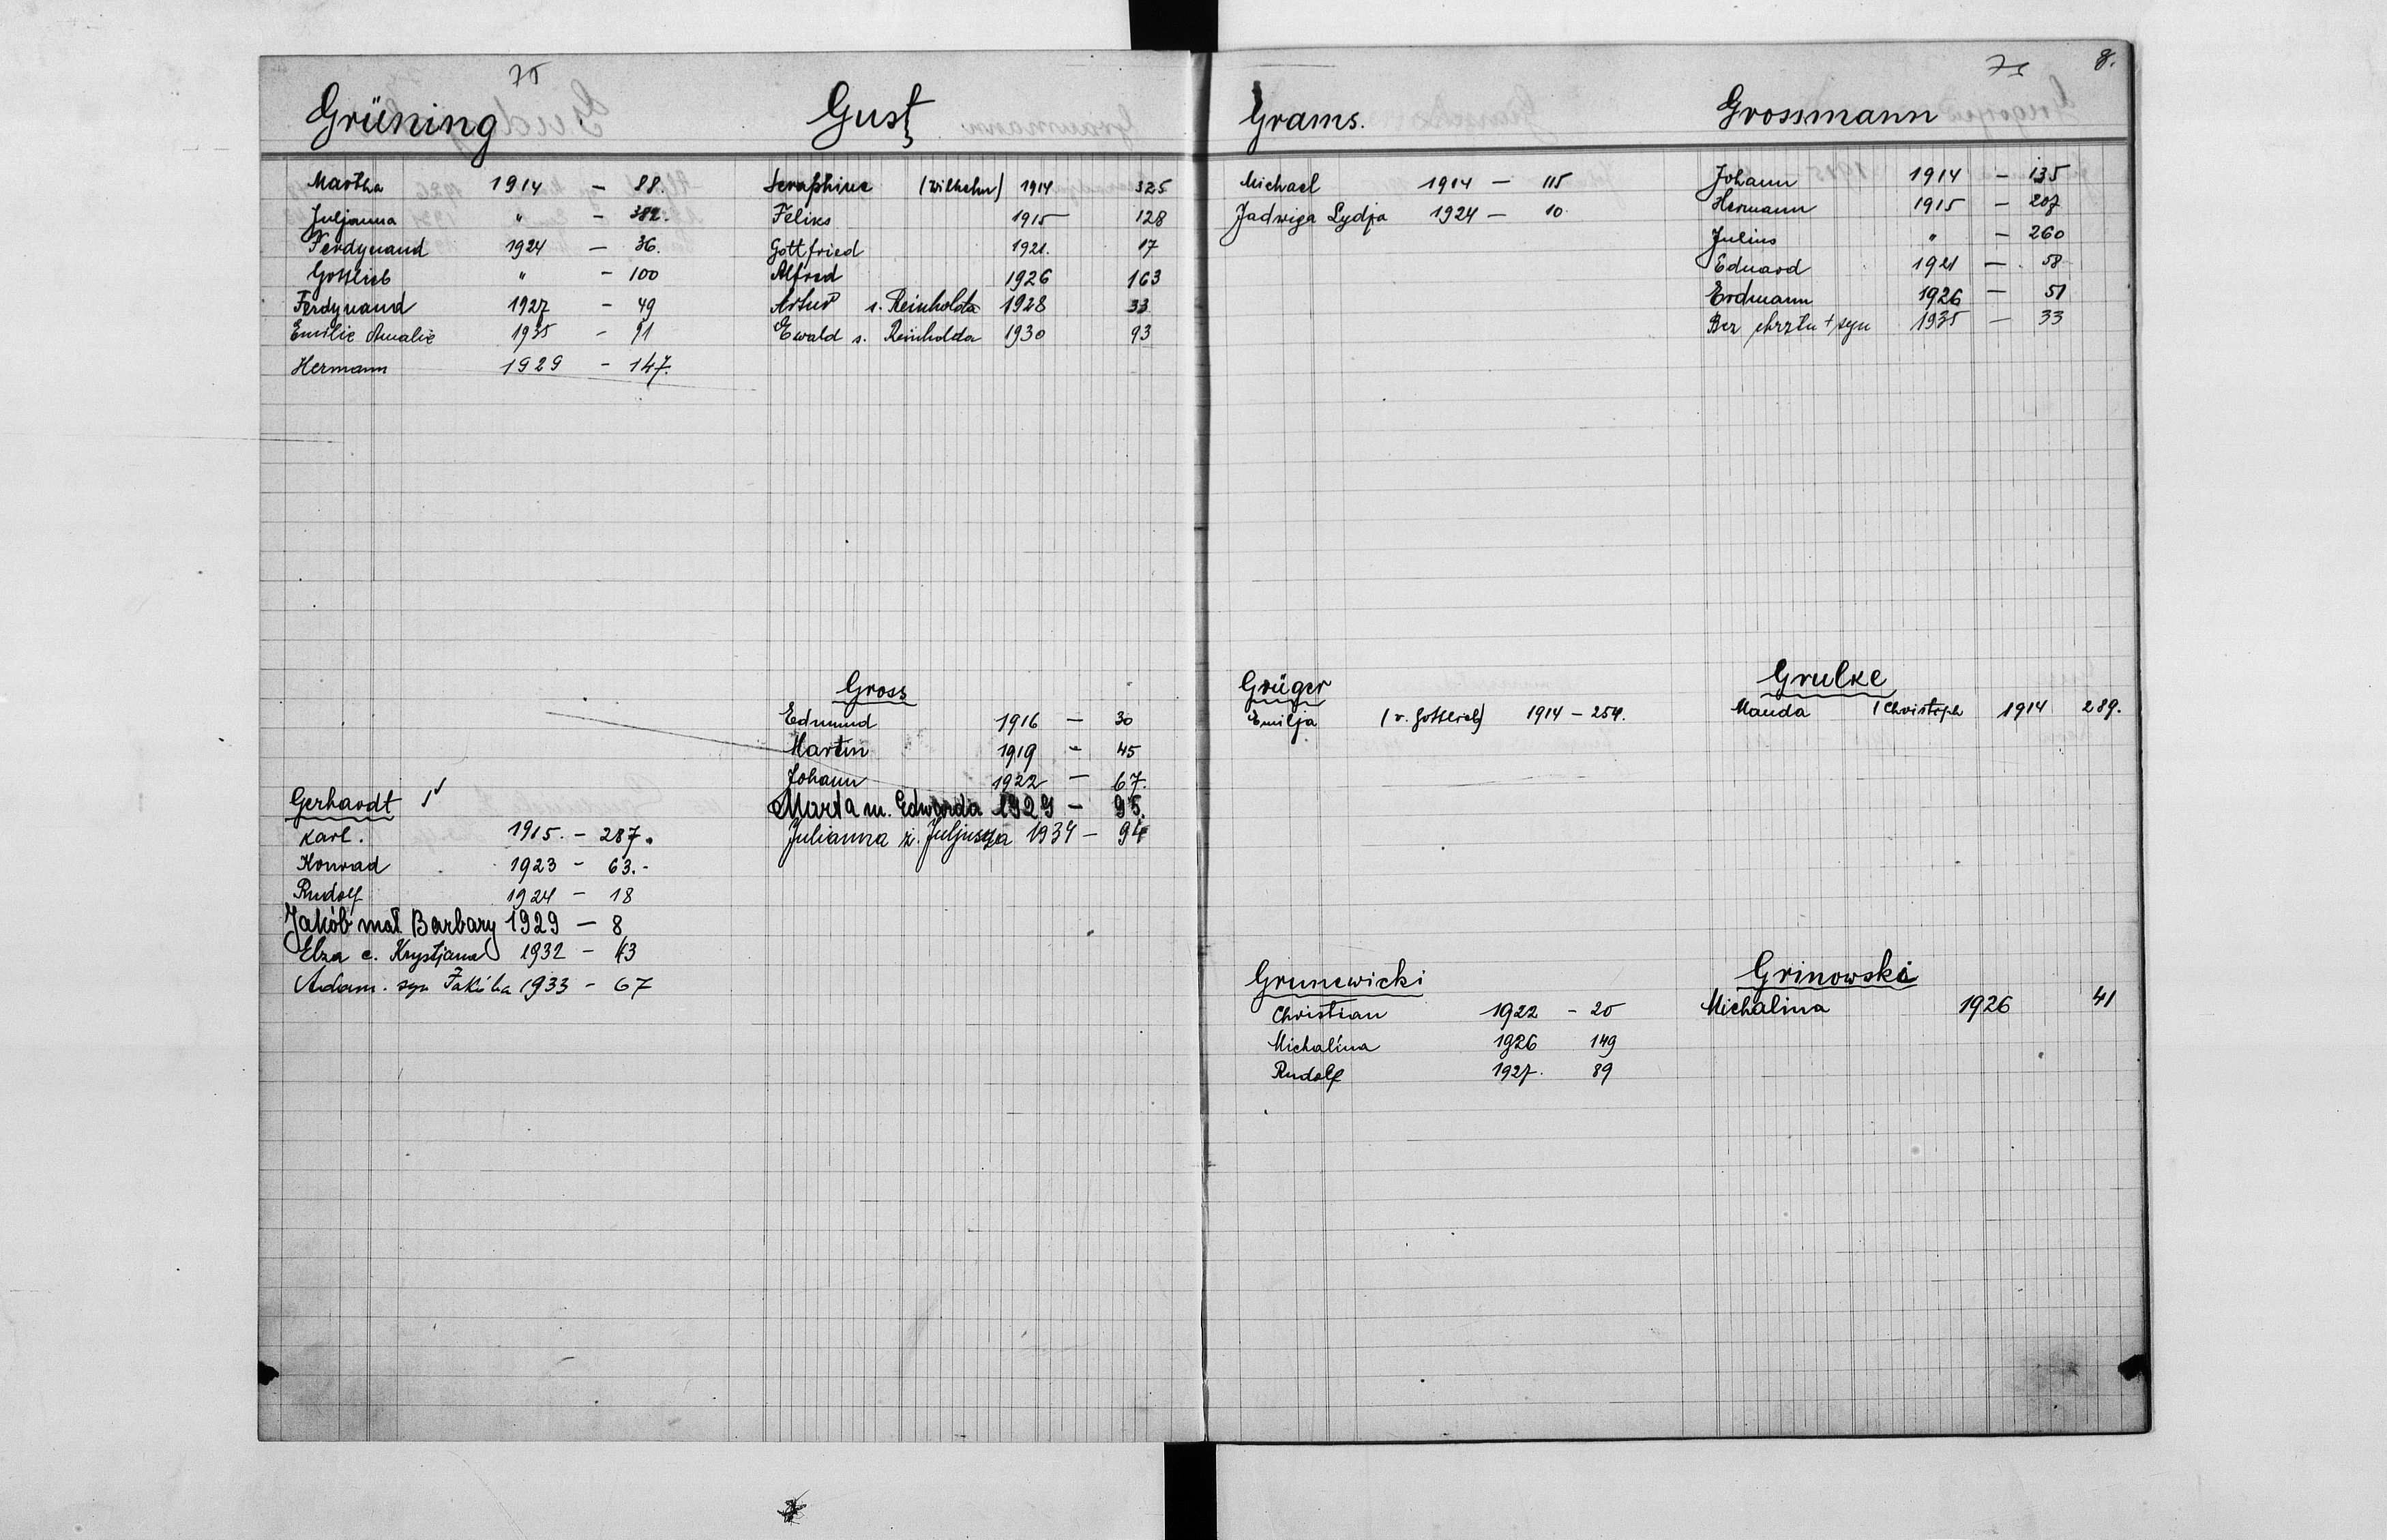 75
Grüning
Martha 1914 - 88.
Juljanna " - 382.
Ferdynand 1924 - 36.
Gottlieb " - 100
Ferdynand 1927 - 49
Emilie Amalie 1935 - 91
Hermann 1929 - 147.
Gerhardt
Karl. 1915. - 287.
Konrad 1923 - 63.-
Rudolf 1924 - 18
Jakób mąż Barbary 1929 - 8
Elza c. Krystjana 1932 - 43
Adam. syn Jakóba 1933 - 67
Gust
Seraphine (Wilhelm) 1914 325
Feliks 1915 128
Gottfried 1921. 17
Alfred 1926 163
Artur s. Reinholda 1928 33
Ewald s. Reinholda 1930 93
Gross
Edmund 1916 - 30
Martin 1919 - 45
Johann 1922 - 67.
Marta m. Edwarda 1929 - 95.
Julianna ż. Juljusza 1934 - 94
8.
Grams.
Michael 1914 - 115
Jadwiga Lydja 1924 - 10
Grüger
Emilja (v. Gottlieb) 1914 - 254.
Grunewicki
Christian 1922 - 20
Michalina 1926 149
Rudolf 1927. 89
Grossmann
Johann 1914 - 135
Hermann 1915 - 207
Julius " - 260
Eduard 1921 - 58
Erdmann 1926 - 51
Bez chrztu + syn 1935 - 33
Grulke
Manda (Christoph 1914 289.
Grinowski
Michalina 1926 41